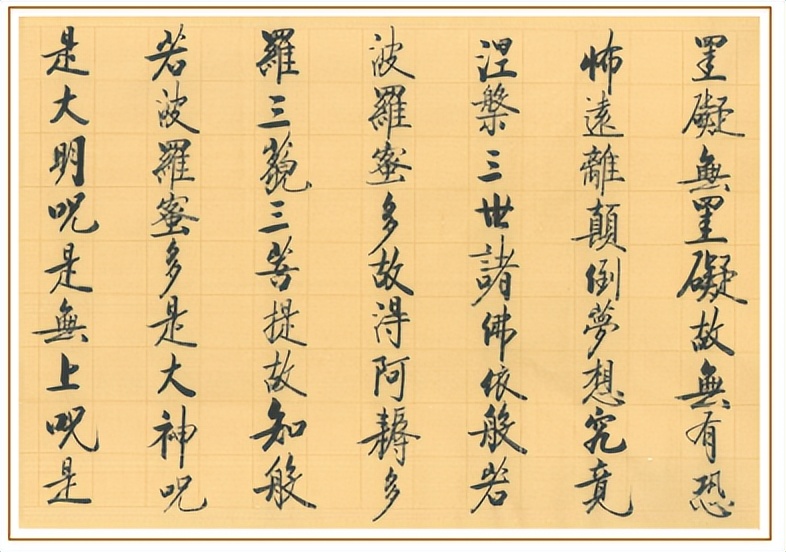 罣礙無罣礙故無有恐
怖遠離顛倒夢想究竟
涅槃三世諸佛依般若
波羅蜜多故得阿耨多
羅三藐三菩提故知般
若波羅蜜多是大神呪
是大明呪是無上呪是